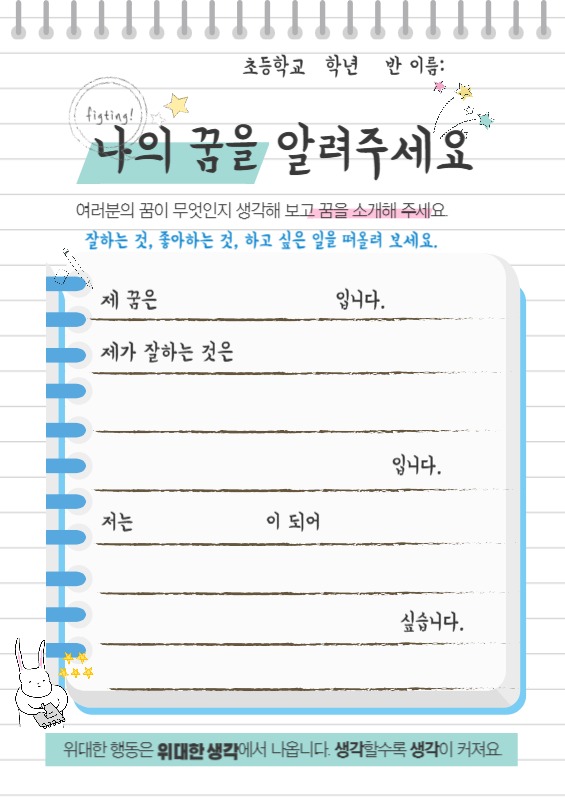 초등학교 학년 반 이름:
figting!
나의 꿈을 알려주세요
여러분의 꿈이 무엇인지 생각해 보고 꿈을 소개해 주세요
잘하는 것, 좋아하는 것, 하고 싶은 일을 떠올려 보세요.
제 꿈은 입니다.
제가 잘하는 것은
입니다.
저는 이 되어
싶습니다.
위대한 행동은 위대한 생각에서 나옵니다. 생각할수록 생각이 커져요.